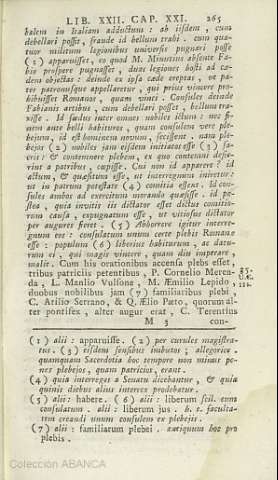 LIB. XXII. CAP. XXI. 265
balem in Italiam adductum : ab iisdem , cum
debellari posset, fraude id bellum trahi . cum qua-
tuor militum legionibus universis pugnari posse
(1) apparuisset, eo quod M. Minutius absente Fa-
bio prospere pugnasset; duas legiones hosti ad cæ-
dem objectas: deinde ex ipsa cæde ereptas , ut pa-
ter patronusque appellaretur , qui prius vincere pro-
hibuisset Romanos, quam vinci . Consules deinde
Fabianis artibus , cum debellari posset , bellum tra-
xisse . Id fœdus inter omnes nobiles ictum : nec fi-
nem ante belli habituros , quam consulem vere ple-
bejum , id est hominem novum , fecissent . nam ple-
bejos (2) nobiles jam eisdem initiatos esse (3) sa-
cris: & contemnere plebem, ex quo contemni desie-
rint a patribus , cœpisse . Cui non id apparere : id
actum, & quæsitum esse, ut interregnum iniretur:
ut in patrum potestate (4) comitia essent . id con-
sules ambos ad exercitum morando quæsisse . id po-
stea, quia invitis iis dictator esset dictus comitio-
rum causa , expugnatum esse , ut vitiosus dictator
per augures fieret . (5) Abhorrere igitur interre-
gnum eos : consulatum unum certe plebis Romanæ
esse : populum (6) liberius habiturum , ac datu-
rum ei , qui magis vincere , quam diu imperare
malit . Cum his orationibus accensa plebs esset,
tribus patriciis petentibus, P. Cornelio Meren-
da , L. Manlio Vulsone , M. Æmilio Lepido
duobus nobilibus jam (7) familiaribus plebei ,
C. Atilio Serrano, & Q. Ælio Pæto, quorum al-
ter pontifex, alter augur erat , C. Terentius
M 3 con-
(1) alii : apparuisse. (2) per curules magistra-
tus . (3) eisdem sensibus imbutos ; allegorice .
quamquam Sacerdotia hoc tempore non minus pe-
nes plebejos, quam patricios, erant.
(4) quia interreges a Senatu dicebantur , & quia
quinis diebus alius interrex prodebatur .
(5) alii: habere. (6) alii : liberum scil. eum
consulatum . alii : liberum jus . h. e. faculta-
tem creandi unum consulem ex plebejis .
(7) alii : familiarum plebei . rariquum hoc pro
plebis .
Colección ABANCA